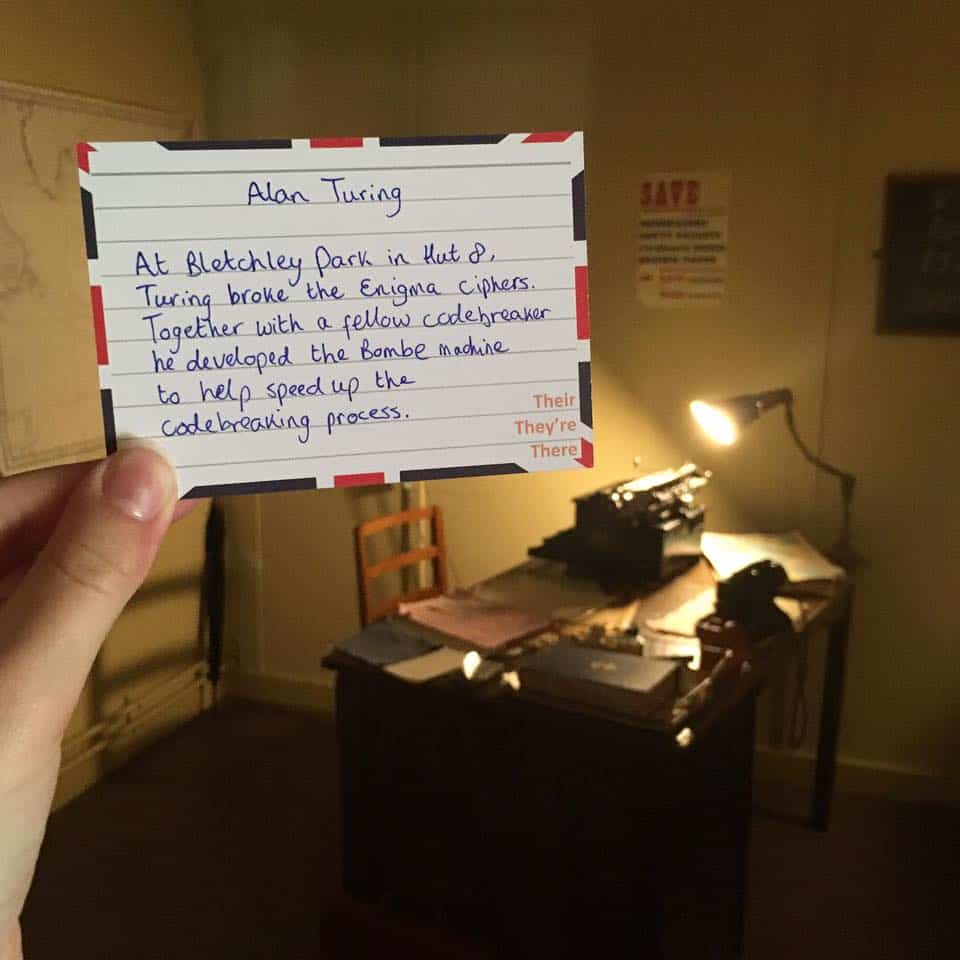 Alan Turing
At Bletchley Park in Hut 8,
Turing broke the Enigma ciphers.
Together with a fellow codebreaker
he developed the Bombe machine
to help speed up the
codebreaking process.
Their
They're
There
SAVE